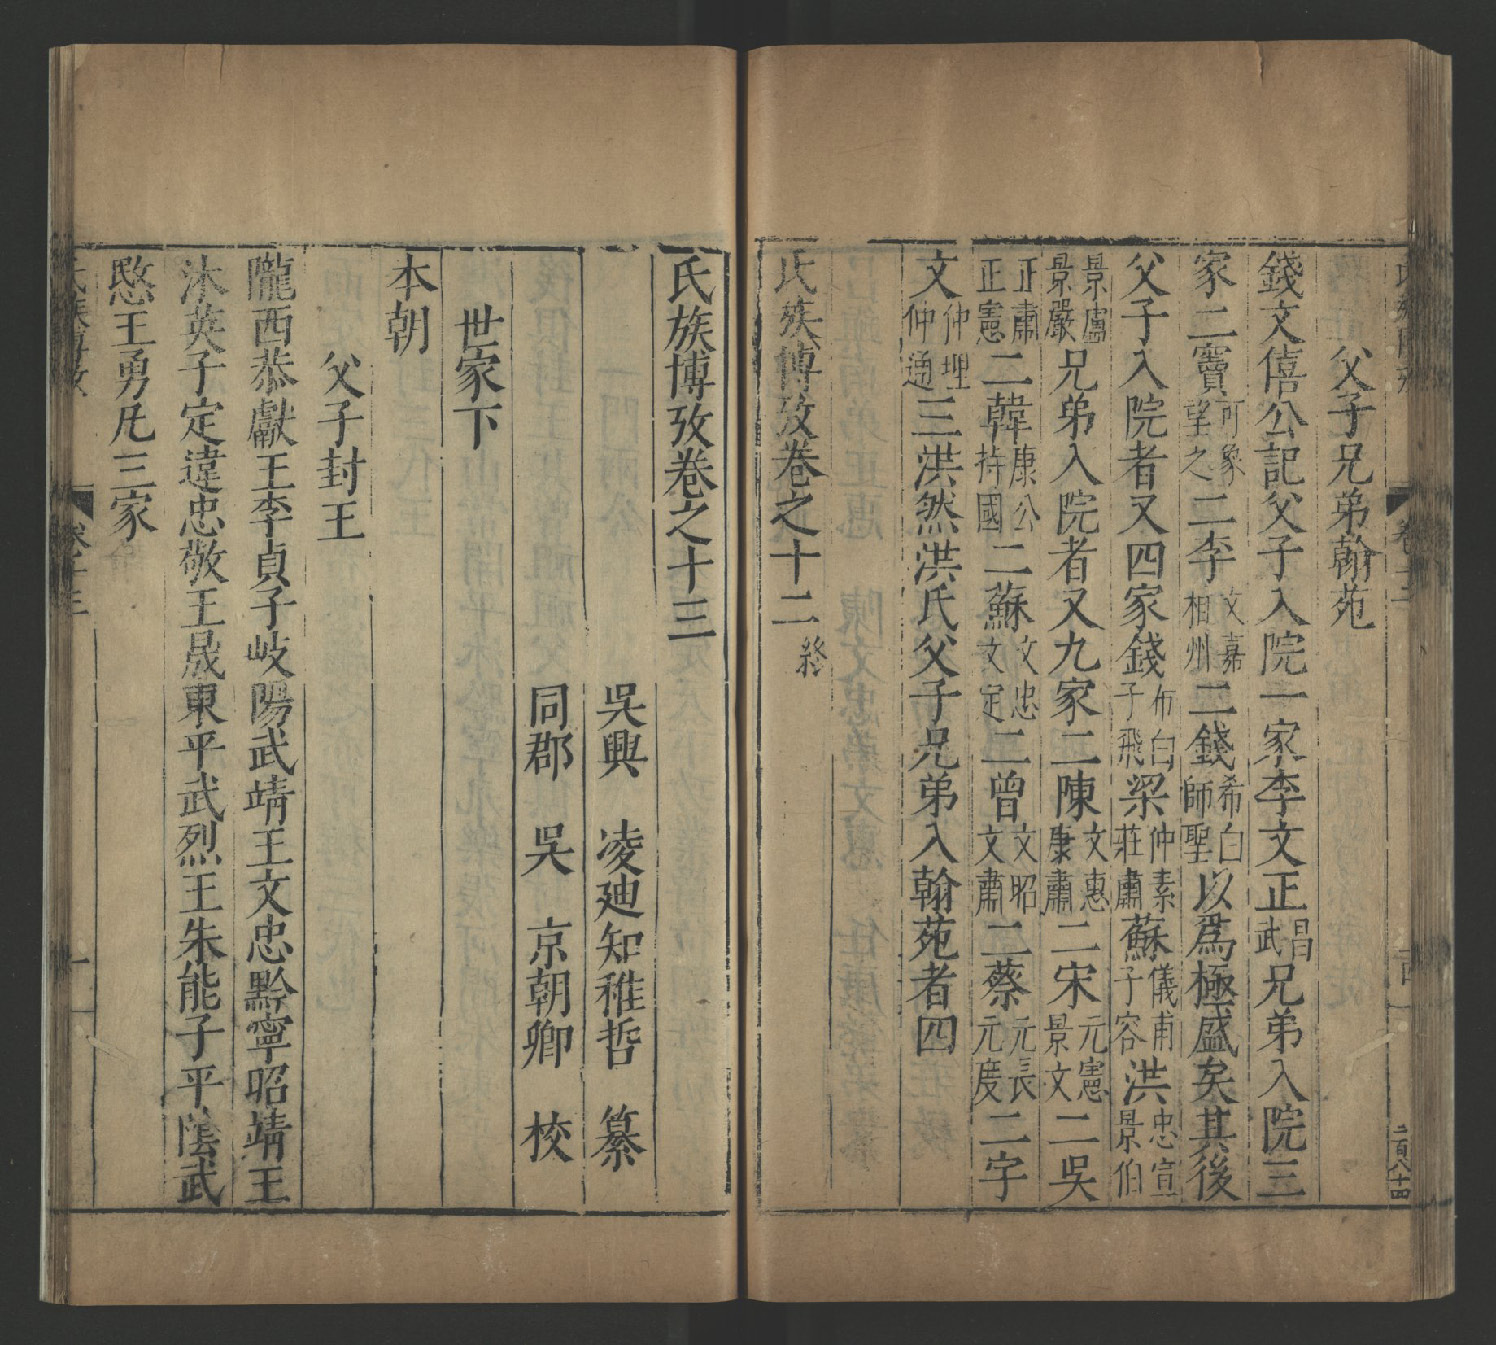 父子兄弟翰苑
錢文僖公記父子入院一家李文正昌武兄弟入院三
家二竇可象望之二李文嘉相州二錢希白師聖以爲極盛矣其後
父子入院者又四家錢布白子飛梁仲素莊肅蘇儀甫子容洪忠宣景伯
景盧景嚴兄弟入院者又九家二陳文惠康肅二宋元憲景文二吳
正肅正憲二韓康公持國二蘇文忠文定二曾文昭文肅二蔡元長元度二宇
文仲理仲通三洪然洪氏父子兄弟入翰苑者四
氏族博攷卷之十二終
氏族博攷卷之十三
吳興 凌廸知稚哲 纂
同郡 吳 京朝卿 校
世家下
本朝
父子封王
隴西恭獻王李貞子岐陽武靖王文忠黔寧昭靖王
沐英子定遠忠敬王晟東平武烈王朱能子平陰武
愍王勇凡三家